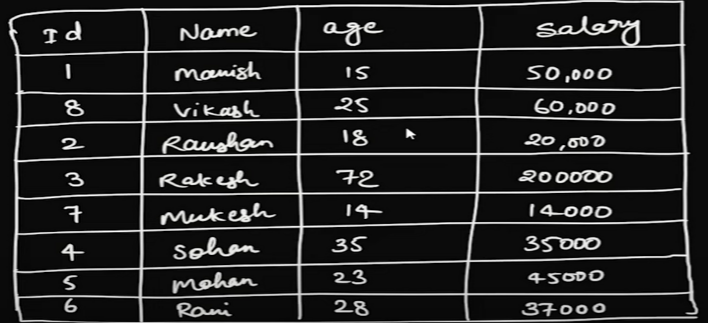 Id Name age Salary
1 Manish 15 50,000
8 Vikash 25 60,000
2 Raushan 18 20,000
3 Rakesh 72 200000
7 Mukesh 14 14000
4 Sohan 35 35000
5 Mohan 23 45000
6 Rani 28 37000